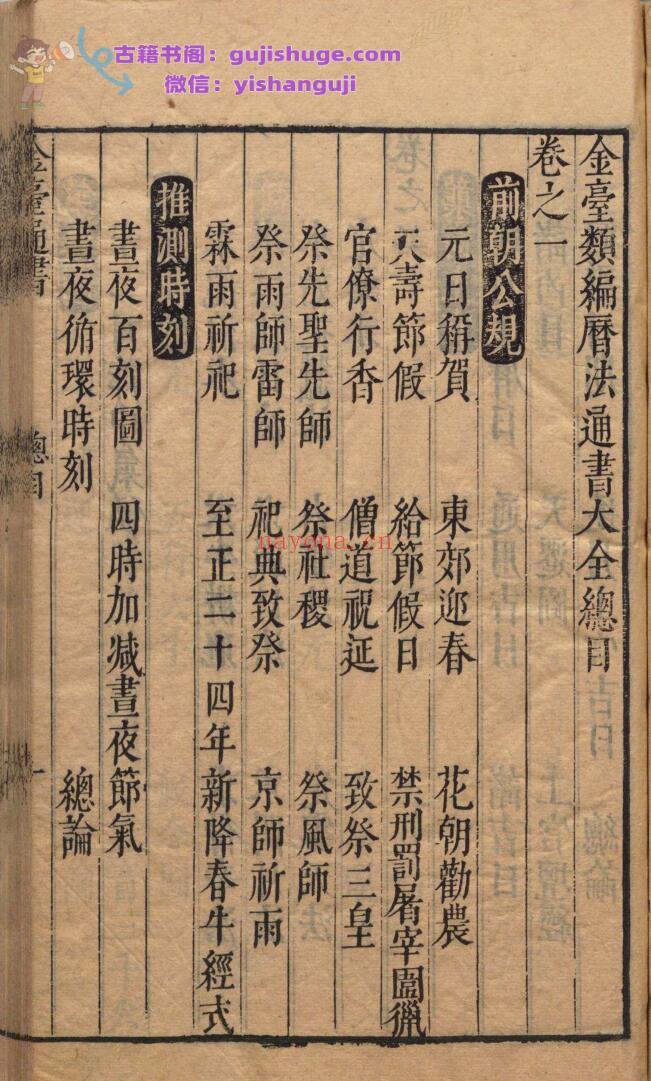 古籍书阁：gujishuge.com
微信：yishanguji
nayona.cn
金臺類編曆法通書大全總目
卷之一
前朝公規
元日稱賀 東郊迎春 花朝勸農
天壽節假 給節假日 禁刑罰屠宰圍獵
官僚行香 僧道祝延 致祭三皇
祭先聖先師 祭社稷 祭風師
祭雨師雷師 祀典致祭 京師祈雨
霖雨祈祀 至正二十四年新降春牛經式
推測時刻
晝夜百刻圖 四時加减晝夜節氣
晝夜循環時刻 總論
金臺通書 總目 一